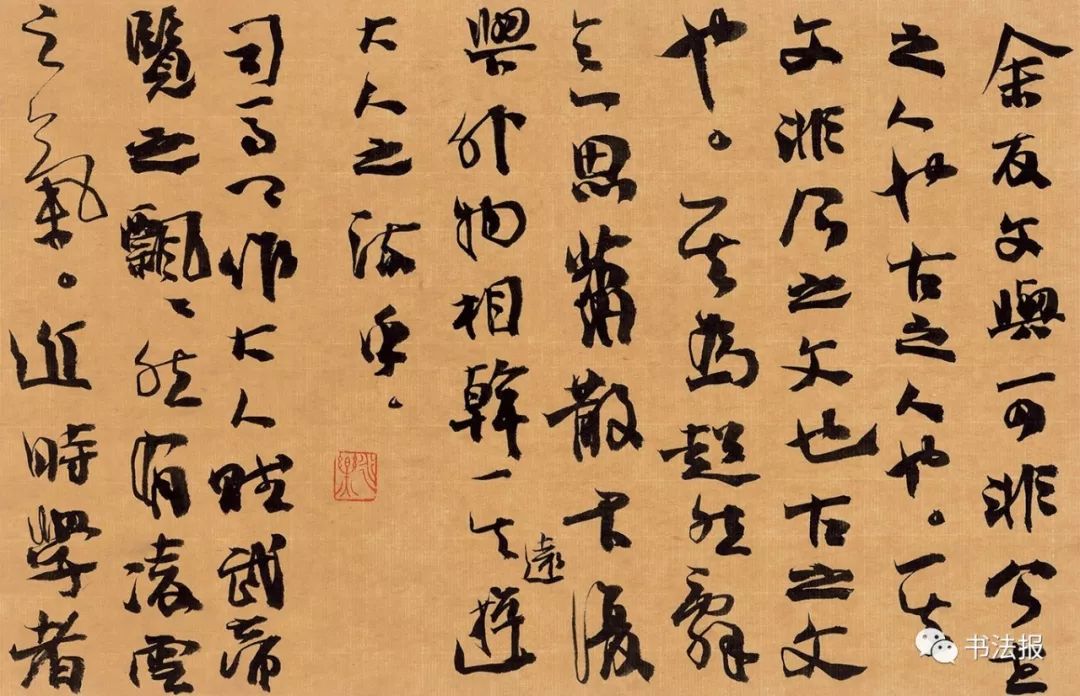 余友文與可非今世
之人也古之人也。其
文非今之文也古之文
也。其為超然辭
意思蕭散不復
與外物相幹其遠遊
大人之流乎。
司馬作大人賦武帝
覽之飄飄然有凌雲
之氣。近時學者
书法报